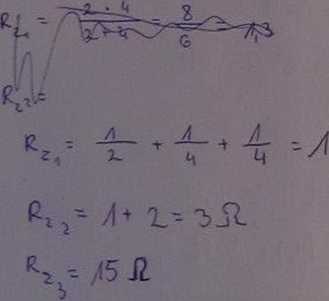 R_z1 = 2 · 4 / 2 + 4 = 8 / 6 = 1,3
R_z2 =
R_z1 = 1/2 + 1/4 + 1/4 = 1
R_z2 = 1 + 2 = 3 Ω
R_z3 = 15 Ω